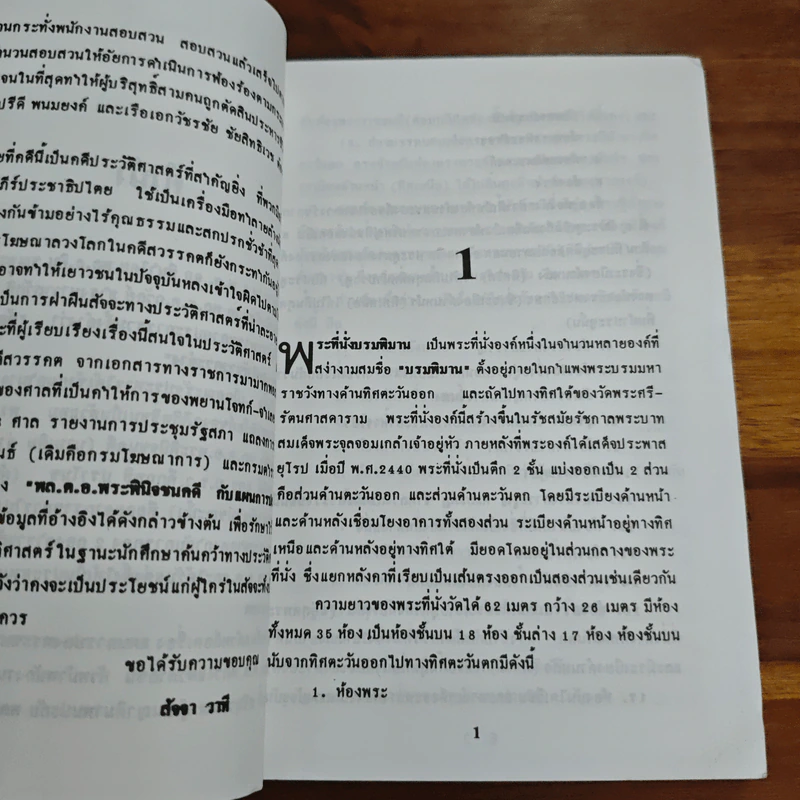 วนกระทั่งพนักงานสอบสวน สอบสวนแล้วเสร็จ
นวนสอบสวนให้อัยการดำเนินการฟ้องร้องตาม
จนในที่สุดทำให้ผู้บริสุทธิ์สามคนถูกตัดสินประหาร
ปรีดี พนมยงค์ และเรือเอกวัชรชัย ชัยสิทธิเวช
ยที่คดีนี้เป็นคดีประวัติศาสตร์ที่สำคัญยิ่ง
ภีร์ประชาธิปไตย ใช้เป็นเครื่องมือทำลายล้าง
งกันข้ามอย่างไร้คุณธรรมและสกปรกชั่วช้าที่สุด
โฆษณาลวงโลกในคดีสวรรคตก็ยังกระทำกันอยู่
อาจทำให้เยาวชนในปัจจุบันหลงเข้าใจผิดไปตาม
เป็นการฝ่าฝืนสัจจะทางประวัติศาสตร์ที่น่าละอาย
ะที่ผู้เรียบเรียงเรื่องนี้สนใจในประวัติศาสตร์
ดีสวรรคต จากเอกสารทางราชการมามาก
ของศาลที่เป็นคำให้การของพยานโจทก์-จำเลย
ะ ศาล รายงานการประชุมรัฐสภา แถลงการ
นธ์ (เดิมคือกรมโฆษณาการ) และกรม
ง "พล.ต.อ.พระพินิจชนคดี กับแผนการ
ข้อมูลที่อ้างอิงได้ดังกล่าวข้างต้น เพื่อรักษา
ติศาสตร์ในฐานะนักศึกษาค้นคว้าทางประวัติ
วังว่าคงจะเป็นประโยชน์แก่ผู้ใคร่ในสัจจะทั้ง
ควร
ขอได้รับความขอบคุณ
สัจจา วาที
1
พระที่นั่งบรมพิมาน เป็นพระที่นั่งองค์หนึ่งในจำนวนหลายองค์ที่
สง่างามสมชื่อ "บรมพิมาน" ตั้งอยู่ภายในกำแพงพระบรมมหา
ราชวังทางด้านทิศตะวันออก และถัดไปทางทิศใต้ของวัดพระศรี-
รัตนศาสดาราม พระที่นั่งองค์นี้สร้างขึ้นในรัชสมัยรัชกาลพระบาท
สมเด็จพระจุลจอมเกล้าเจ้าอยู่หัว ภายหลังที่พระองค์ได้เสด็จประพาส
ยุโรป เมื่อปี พ.ศ.2440 พระที่นั่งเป็นตึก 2 ชั้น แบ่งออกเป็น 2 ส่วน
คือส่วนด้านตะวันออก และส่วนด้านตะวันตก โดยมีระเบียงด้านหน้า
และด้านหลังเชื่อมโยงอาคารทั้งสองส่วน ระเบียงด้านหน้าอยู่ทางทิศ
เหนือและด้านหลังอยู่ทางทิศใต้ มียอดโดมอยู่ในส่วนกลางของพระ
ที่นั่ง ซึ่งแยกหลังคาที่เรียบเป็นเส้นตรงออกเป็นสองส่วนเช่นเดียวกัน
ความยาวของพระที่นั่งวัดได้ 62 เมตร กว้าง 26 เมตร มีห้อง
ทั้งหมด 35 ห้อง เป็นห้องชั้นบน 18 ห้อง ชั้นล่าง 17 ห้อง ห้องชั้นบน
นับจากทิศตะวันออกไปทางทิศตะวันตกมีดังนี้
1. ห้องพระ
1